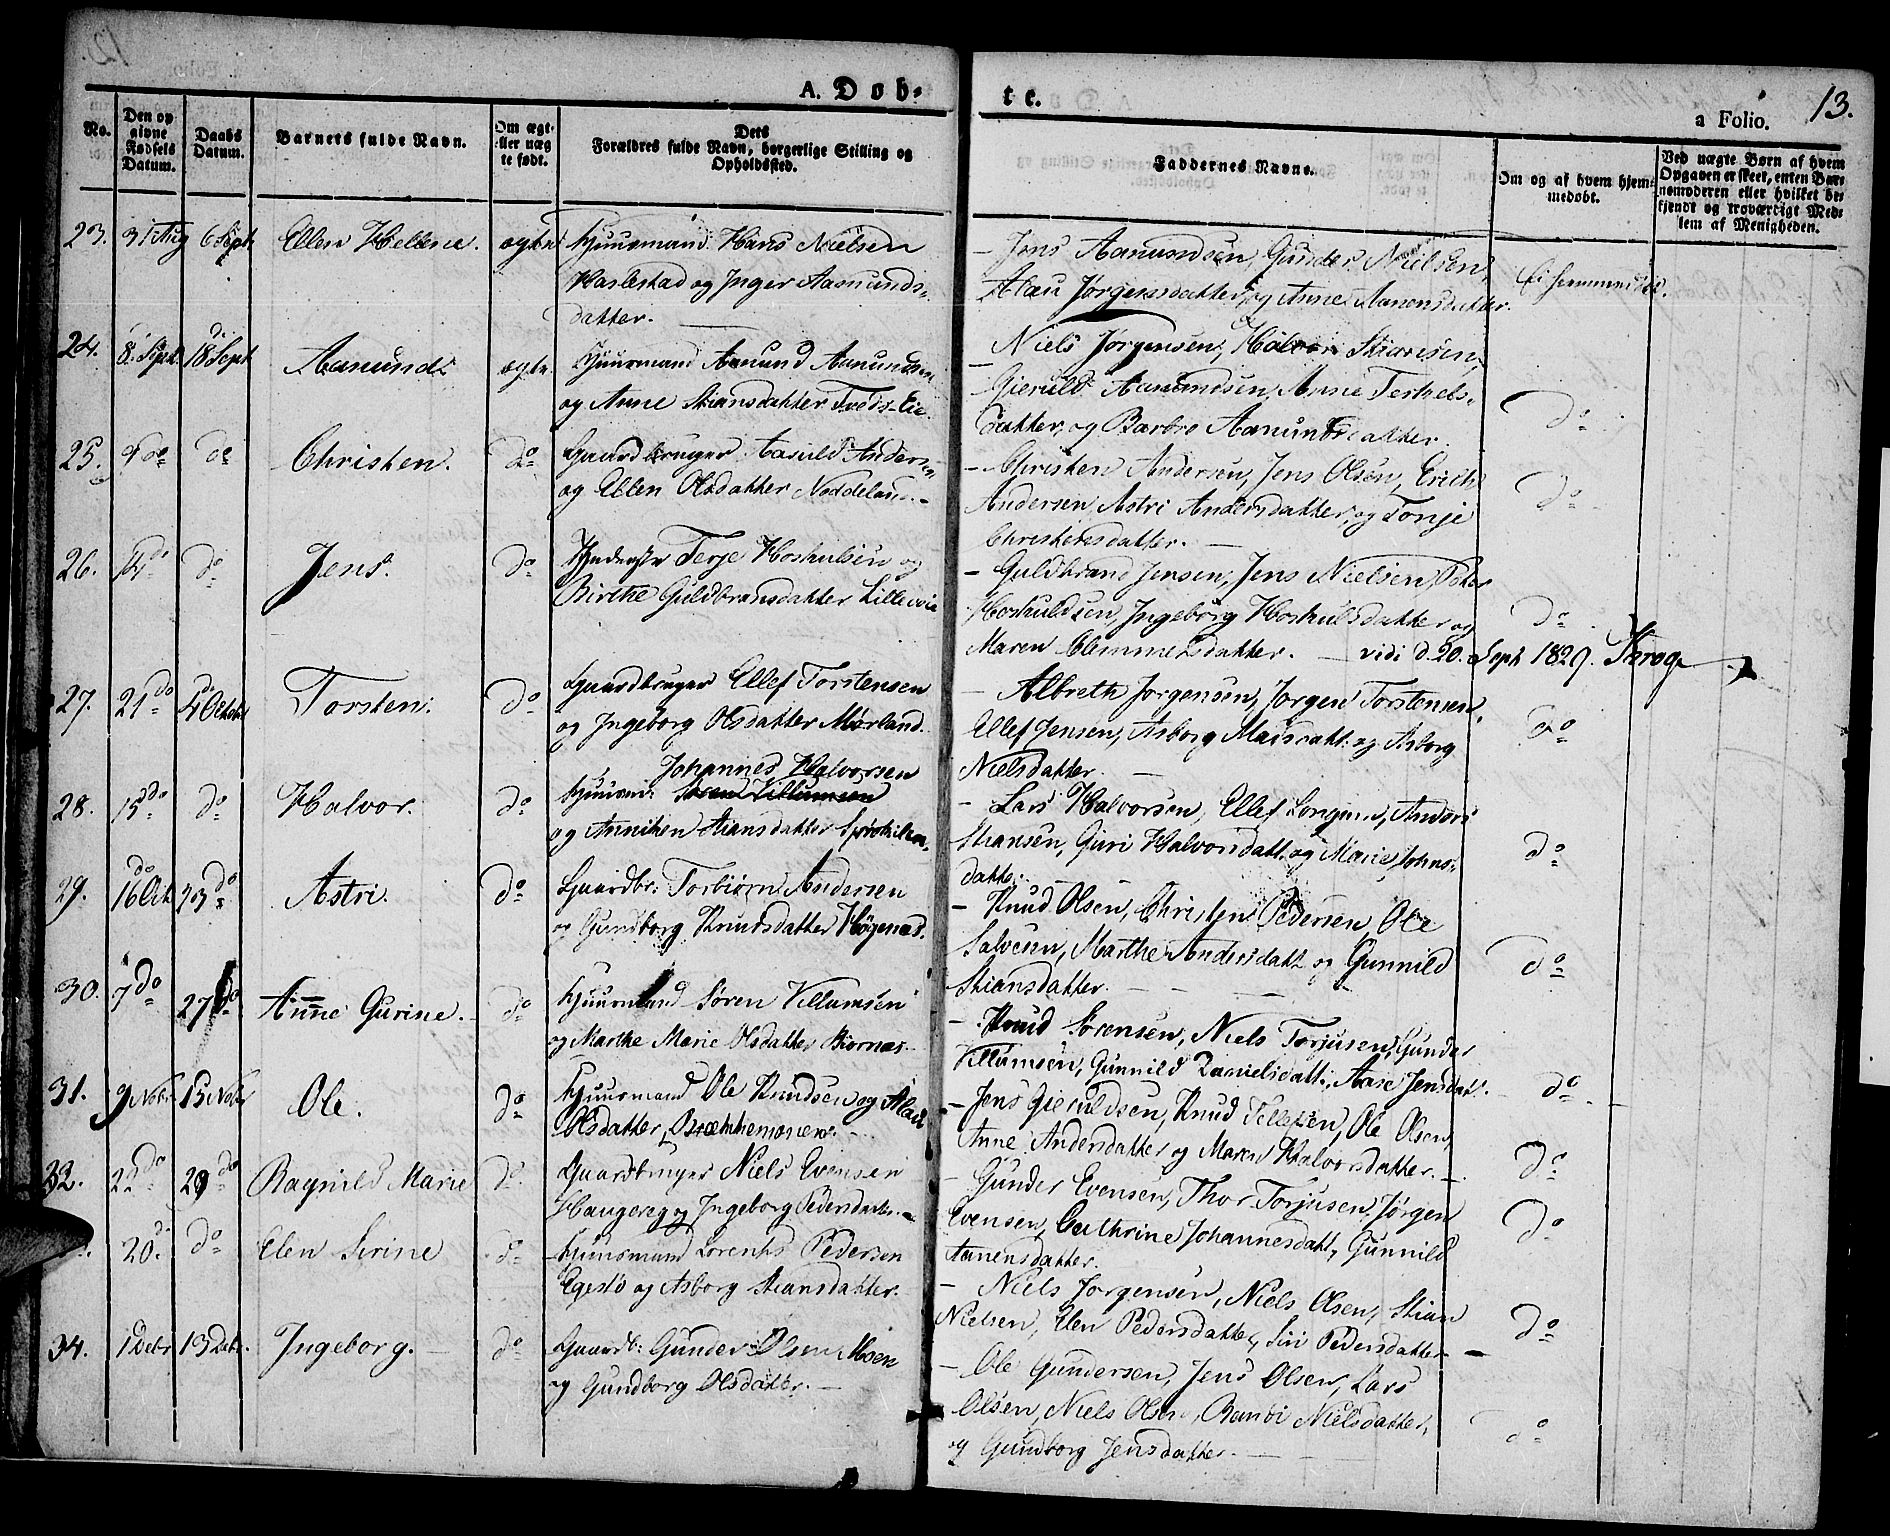 A. Døbte.
a Folio. 13.
No.
Den opgivne Fødsels Datum.
Daabs Datum.
Barnets fulde Navn.
Om ægte eller nægte født.
Dets Forældres fulde Navn, borgerlige Stilling og Opholdssted.
Faddernes Navne.
Om og af hvem hjemmedøbt.
Ved nægte Børn af hvem Opgaven er skeet, enten Barnemoderen eller hvilket bekjendt og troværdigt Medlem af Menigheden.
23. 31 Aug 6 Sept Ellen Hellena. ægte Huusmand Hans Nielsen
Harlestad og Inger Aamunds-
datter.
Jens Aamundsen, Gunder Nielsen,
Alau Jørgensdatter, og Anne Aanonsdatter.
Ei hjemmedøbt.
24. 8 Sept. 18 Sept Aanund ægte. Huusmand Aanund Aanundsen
og Anne Stiansdatter Tveds-Eie.
Niels Jørgensen, Halvor Stiansen,
Gieruld Aanundsen, Anne Terkels-
datter, og Barbro Aanundsdatter.
do
25. 9 do do Christen. do Gaardbruger Aasuld Andersen
og Ellen Olsdatter Noddeland.
Christen Andersen, Jens Olsen, Erich
Andersen, Astri Andersdatter, og Tonje
Christensdatter.
do
26. 14 do do Jens. do Terje Hoskulsen og
Birthe Guldbransdatter
Guldbrand Jensen, Jens Nielsen, Peter
Hoskuldsen, Ingeborg Hoskulsdatter og
Maren Clemmetsdatter. vidi d. 20. Sept 1829.
do
27. 21 do 4 Octobr Torsten. do Gaardbruger Ellef Torstensen
og Ingeborg Olsdatter Mørland.
Albreth Jørgensen, Jørgen Torstensen,
Ellef Jensen, Asborg Madsdatt. og Asborg
Nielsdatter.
do
28. 15 do do Halvor. do Johannes Halvorsen
Huusm: Søren Villumsen
og Anniken Stiansdatter
Lars Halvorsen, Ellef Longum, Anders
Stiansen, Guri Halvorsdatt. og Marie Johns-
datter.
do
29. 16 Oct 23 do Astri. do Gaardbr: Torbiørn Andersen
og Gundborg Knudsdatter Høgenæs.
Knud Olsen, Christen Pedersen, Ole
Salvesen, Marthe Andersdatt og Gunnild
Stiansdatter.
do
30. 7 do 27 do Anne Gurine. do Huusmand Søren Villumsen
og Marthe Marie Olsdatter Biornæs.
Knud Sørensen, Niels Torjusen, Gunder
Villumsen, Gunnild Danielsdatt., Aase Jensdatt.
do
31. 9 Nobr 15 Nobr Ole. do Huusmand Ole Knudsen og Alau
Olsdatter,
Jens Gieruldsen, Knud Tellefsen, Ole Olsen,
Anne Andersdatter og Maren Halvorsdatter.
do
32. 22 do 29 do Ragnild Marie do Gaardbruger Niels Evensen
Haugerej og Ingeborg Pedersdatter.
Gunder Evensen, Thor Torjusen, Jørgen
Evensen, Cathrine Johannesdatt, Gunnild
Aanensdatter.
do
20. do do Elen Sirine do Huusmand Lorents Pedersen
Egestø og Asborg Stiansdatter.
Niels Jørgensen, Niels Olsen, Stian
Nielsen, Elen Pedersdatter, Siri Pedersdatter
do
34. 1 Debr 13 Debr. Ingeborg. do Gaardb: Gunder Olsen Moen
og Gundborg Olsdatter.
Ole Gundersen, Jens Olsen, Lars
Olsen, Niels Olsen, Randi Nielsdatter,
og Gundborg Jensdatter.
do